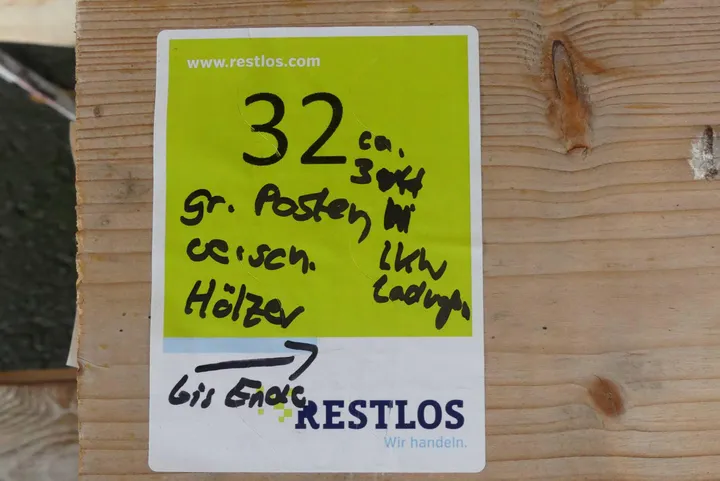 www.restlos.com
32
ca.
3
gr. Posten
versch.
Hölzer
LKW
Ladungen
bis Ende
RESTLOS
Wir handeln.